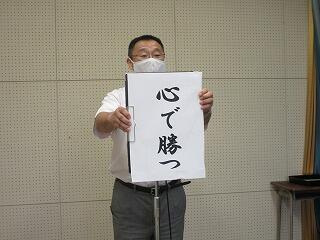 心で勝つ